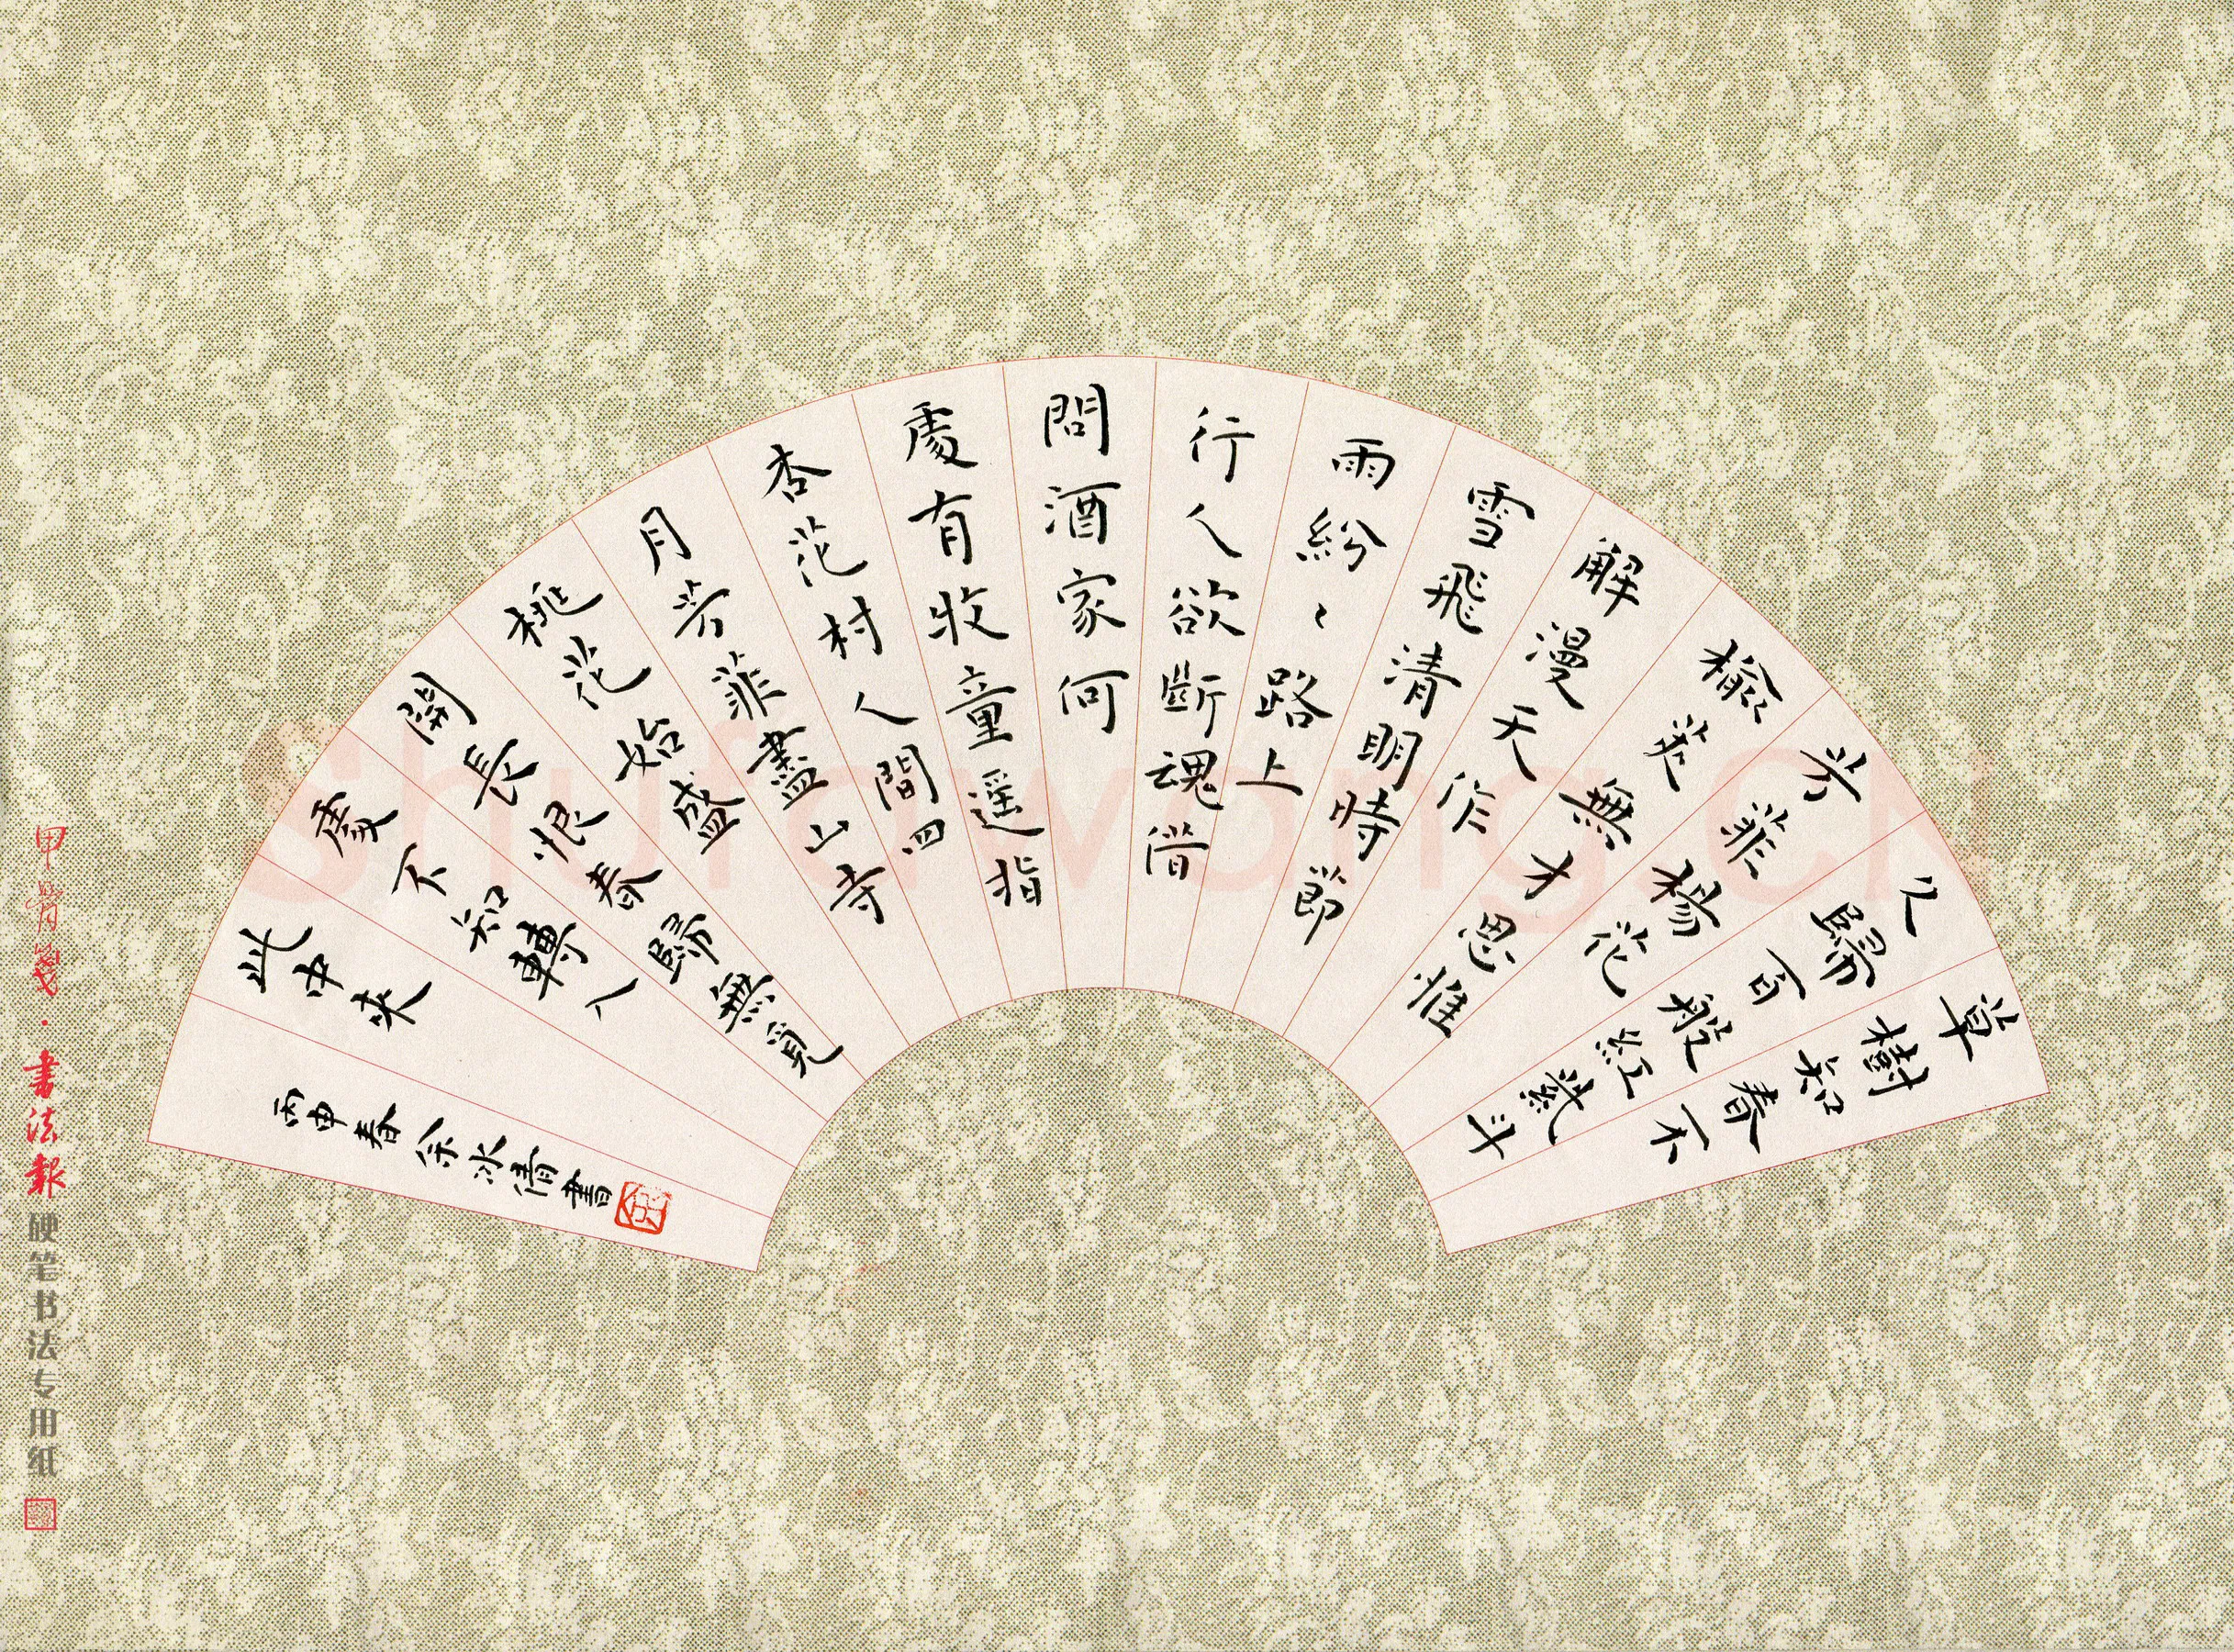 草樹知春不
久歸百般紅紫斗
芳菲楊花
榆莢無才思惟
解漫天作
雪飛清明時節
雨紛〻路上
行人欲斷魂借
問酒家何
處有牧童遥指
杏花村人間四
月芳菲盡山寺
桃花始盛
開長恨春歸無覓
處不知轉入
此中来
丙申春余冰清書
甲骨箋·書法報 硬笔书法专用纸
Shufawang.CN